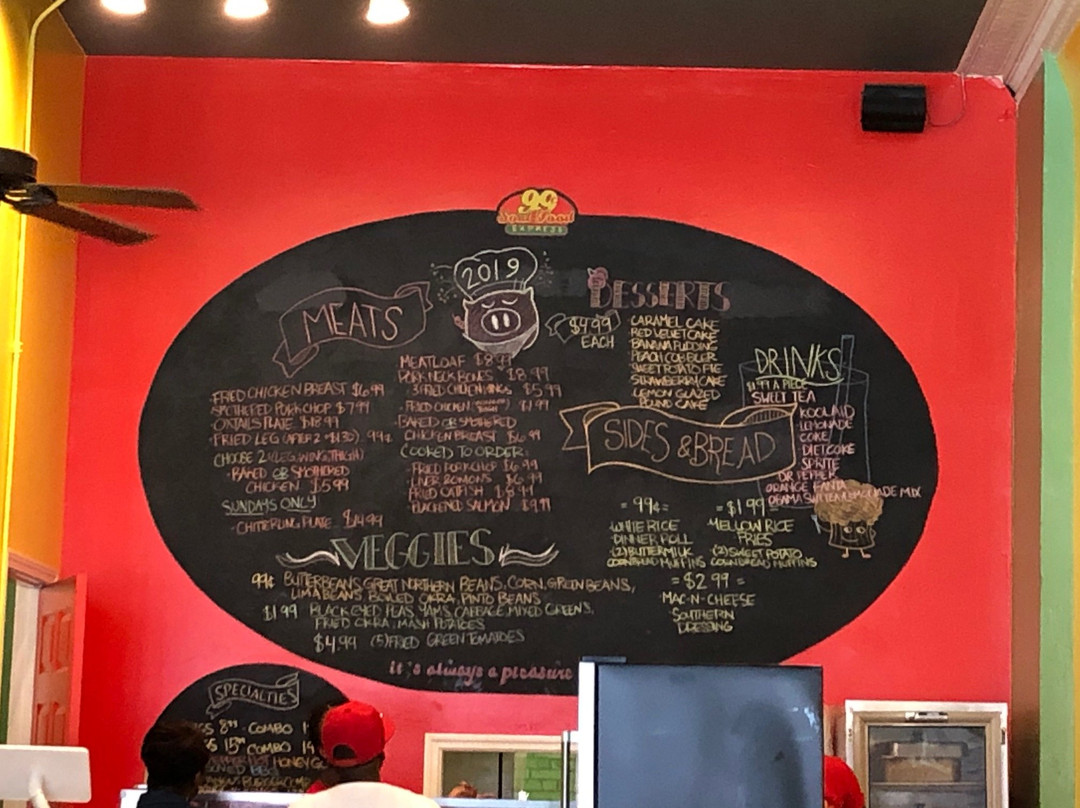 99¢
Soul Food
EXPRESS
2019
MEATS
FRIED CHICKEN BREAST $6.99
SMOTHERED PORKCHOP $7.99
OXTAILS PLATE $18.99
FRIED LEG (AFTER 2 = $1.30) .99¢
CHOOSE 2 (LEG, WING, THIGH)
BAKED OR SMOTHERED
CHICKEN $5.99
SUNDAYS ONLY
CHITTERLING PLATE $14.99
MEATLOAF $8.99
PORK NECK BONES $8.99
FRIED CHICKEN WINGS $5.99
FRIED CHICKEN $1.99
BAKED OR SMOTHERED
CHICKEN BREAST $6.99
COOKED TO ORDER:
FRIED PORKCHOP $6.99
LIVER & ONIONS $6.99
FRIED CATFISH $8.99
BLACKENED SALMON $9.99
DESSERTS
$4.99
EACH
CARAMEL CAKE
RED VELVET CAKE
BANANA PUDDING
PEACH COBBLER
SWEET POTATO PIE
STRAWBERRY CAKE
LEMON GLAZED
POUND CAKE
DRINKS
$1.99 A PIECE
SWEET TEA
KOOLAID
LEMONADE
COKE
DIET COKE
SPRITE
DR PEPPER
ORANGE FANTA
OBAMA SWT TEA & LEMONADE MIX
SIDES & BREAD
= 99¢ =
WHITE RICE
DINNER ROLL
(2) BUTTERMILK
CORNBREAD MUFFINS
= $1.99 =
MELLOW RICE
FRIES
(2) SWEET POTATO
CORNBREAD MUFFINS
= $2.99 =
MAC-N-CHEESE
SOUTHERN
DRESSING
VEGGIES
99¢ BUTTERBEANS, GREAT NORTHERN BEANS, CORN, GREEN BEANS,
LIMA BEANS, BOILED OKRA, PINTO BEANS
$1.99 BLACK EYED PEAS, YAMS, CABBAGE, MIXED GREENS,
FRIED OKRA, MASH POTATOES
$4.99 (5) FRIED GREEN TOMATOES
it's always a pleasure
SPECIALTIES
GS 8.99 - COMBO
GS 15.99 COMBO
HONEY GO